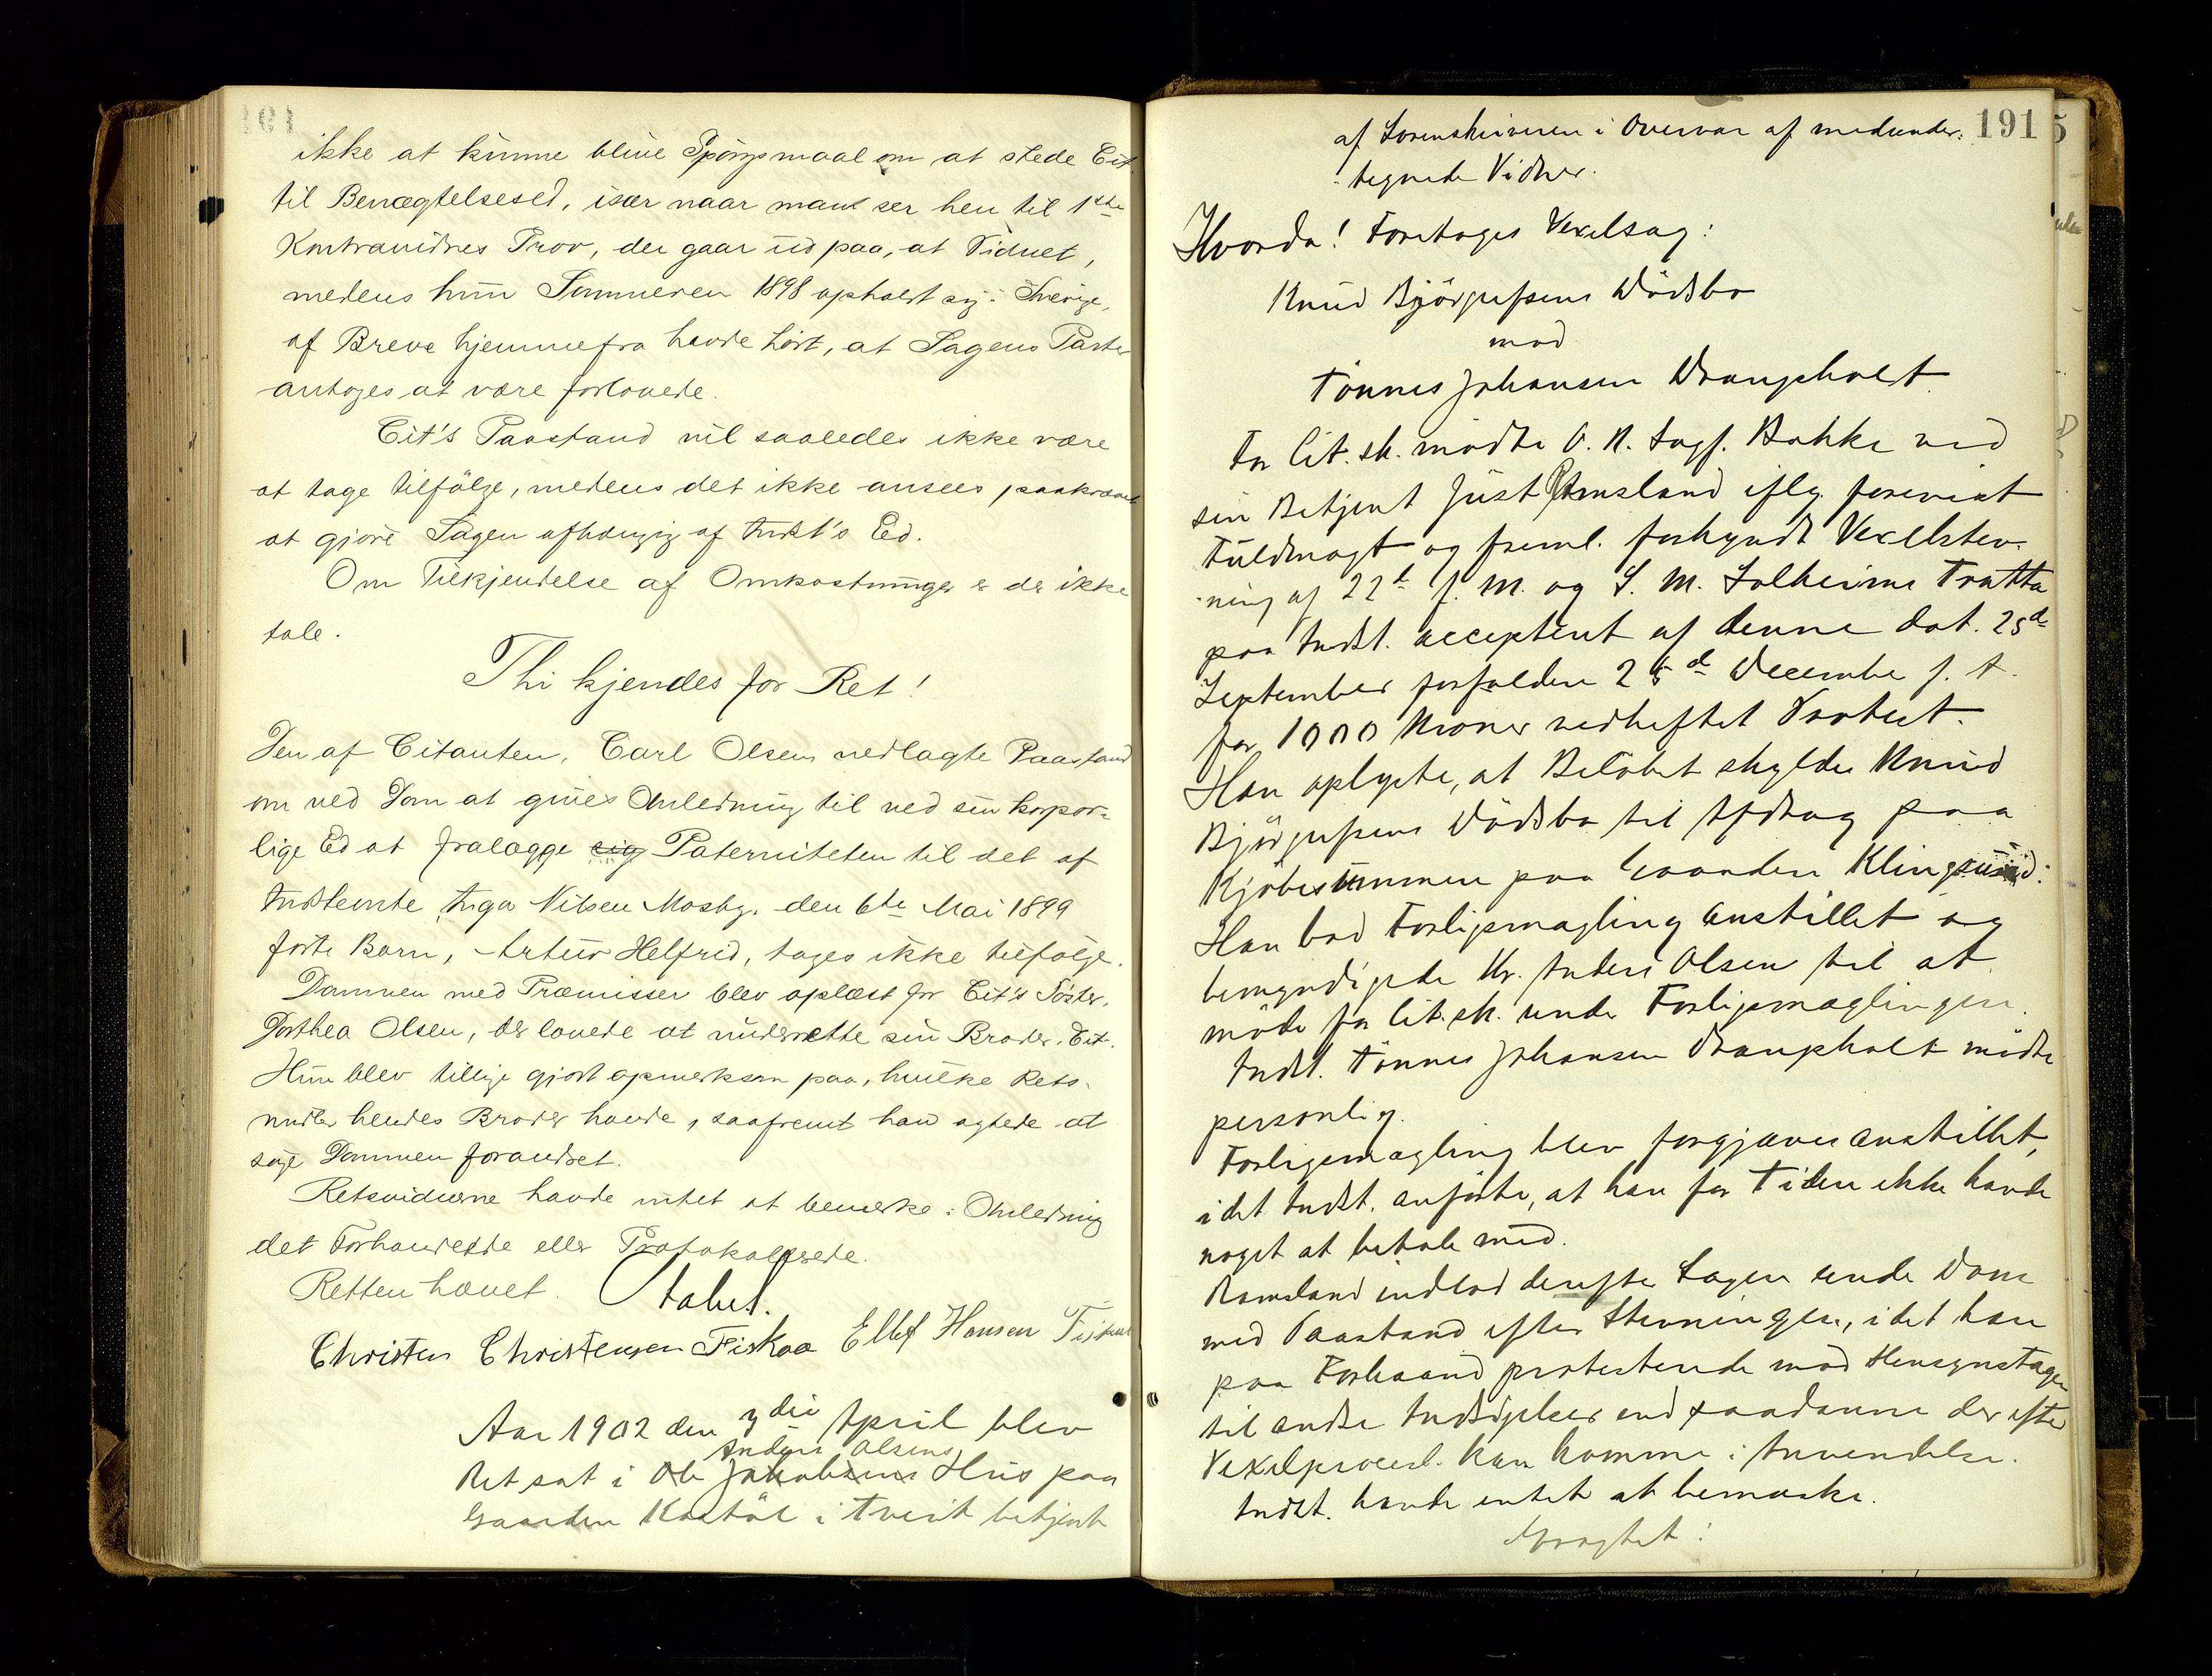 ikke at kunne blive Spörgsmaal om at stede Cit.
til Benægtelsesed, især naar man ser hen til 1ste
Kontravidnes Prov, der gaar ud paa, at Vidnet,
medens hun Sommeren 1898 opholdt sig i Sverige,
af Breve hjemmefra havde hört, at Sagens Parter
antoges at være forlovede.
Cit's Paastand vil saaledes ikke være
at tage tilfölge, medens det ikke ansees paakrævet
at gjöre Sagen afhængig af Indst's Ed.
Om Tilkjendelse af Omkostninger er der ikke
tale.
Thi kjendes for Ret!
Den af Citanten, Carl Olsen nedlagte Paastand
om ved Dom at gives Anledning til ved sin korpor=
lige Ed at fralægge sig Paterniteten til det af
Indstevnte, Inga Nilsen Mosby, den 6te Mai 1899
födte Barn, Artur Helfrid, tages ikke tilfölge.
Dommen med Præmisser blev oplæst for Cit's Söster,
Dorthea Olsen, der lovede at underrette sin Broder, Cit.
Hun blev tillige gjort opmerksom paa, hvilke Rets-
midler hendes Broder havde, saafremt han agtede at
söge Dommen forandret.
Retsvidnerne havde intet at bemerke i Anledning
det Forhandlede eller Protokollerede.
Retten hævet. Stabel.
Christen Christensen Fiskaa Ellef Hansen
Aar 1902 den 3die April blev
Anders Olsens
Ret sat i Ole Jakobsens Hus paa
Gaarden Kostöl i Tveit betjent
191
af Sorenskriveren i Overvær af medunder:
tegnede Vidner.
Hvorda! Foretoges Vexelsag:
Knud Björgufsens Dödsbo
mod
Tönnes Johansen Drangsholt
For Cit. sk. mödte O. R. Sagf. Bakke ved
sin Betjent Just Ramsland iflg. forevist
Fuldmagt og freml. forkyndt Vexelstev-
ning af 22de f. M. og S. M. Solheims Tratta
paa Indst. accepteret af denne dat. 25de
September forfalden 25de December f. A.
for 1000 Kroner vedheftet Protest.
Han oplyste, at Belöbet skyldes Knud
Björgufsens Dödsbo til Afdrag paa
Kjöbesummen paa Gaarden Klingsund:
Han bad Forligsmægling anstillet og
bemyndigede Hr. Anders Olsen til at
möde for Cit. sk. under Forligsmæglingen.
Indst. Tönnes Johansen Drangsholt mödte
personlig.
Forligsmægling blev forgjæves anstillet,
idet Indst. anförte, at han for Tiden ikke havde
noget at betale med.
Ramsland indlod derefter Sagen under Dom
med Paastand efter Stevningen, idet han
paa Forhaand protesterede mod Hensynstagen
til andre Indsigelser end saadanne der efter
Vexelprocesl. kan komme i Anvendelse.
Indst. havde intet at bemærke.
Afsagtet: